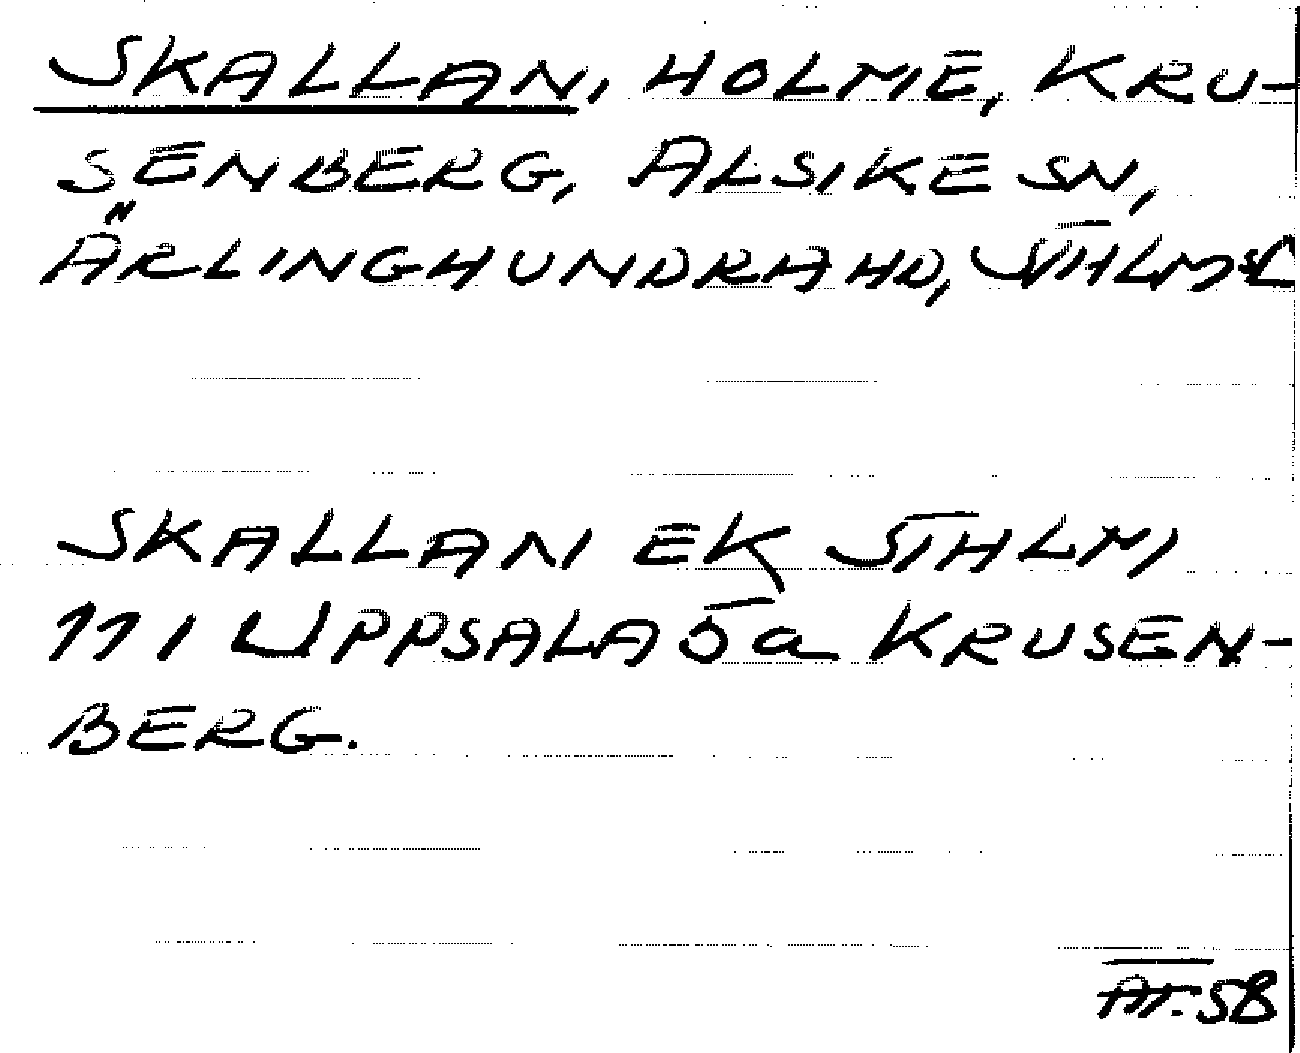 SKALLAN, HOLME, KRU-
SENBERG, ALSIKE SN,
ÄRLINGHUNDRA HD, STHLMS L
SKALLAN EK STHLM
111 UPPSALA Ö a KRUSEN-
BERG.
AT. 58